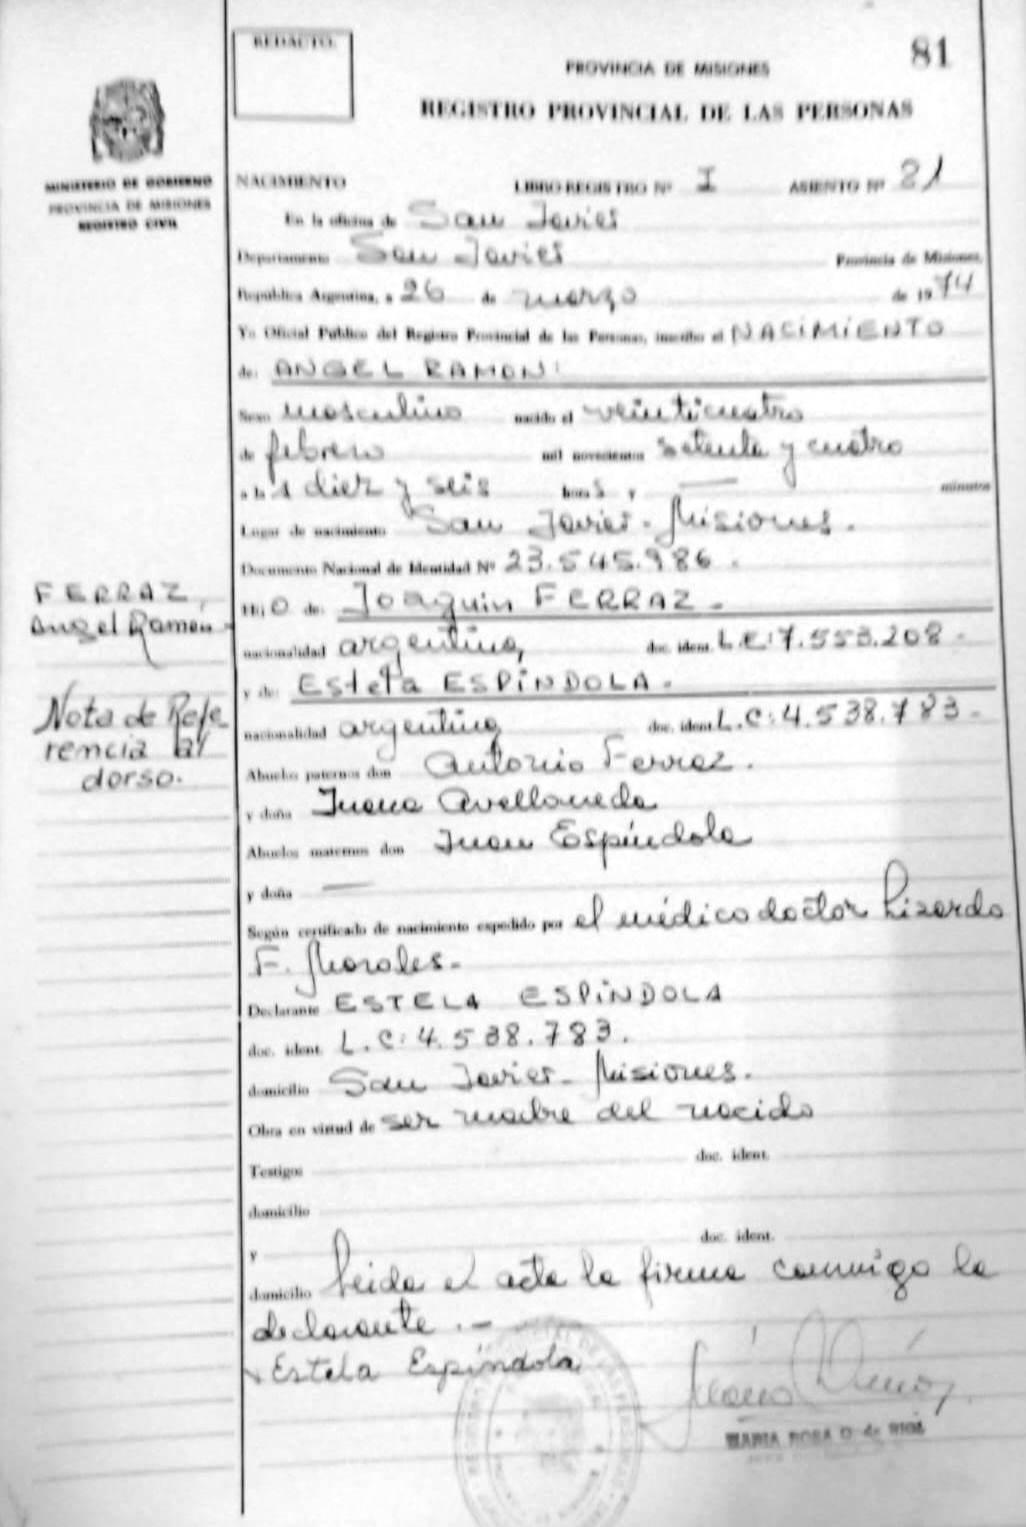 REDACTO.
81
PROVINCIA DE MISIONES
REGISTRO PROVINCIAL DE LAS PERSONAS
MINISTERIO DE GOBIERNO
PROVINCIA DE MISIONES
REGISTRO CIVIL
NACIMIENTO LIBRO REGISTRO Nº I ASIENTO Nº 81
En la oficina de San Javier
Departamento San Javier Provincia de Misiones,
República Argentina, a 26 de marzo de 1974
Yo Oficial Público del Registro Provincial de las Personas, inscribo el NACIMIENTO
de: ANGEL RAMON:
Sexo masculino nacido el veinticuatro
de febrero mil novecientos setenta y cuatro
a las diez y seis horas y — minutos
Lugar de nacimiento San Javier - Misiones.
Documento Nacional de Identidad Nº 23.545.986.
FERRAZ,
Angel Ramon
Hijo de: Joaquin FERRAZ.-
nacionalidad argentina, doc. ident. L.E: 7.553.208-
y de: Estela ESPÍNDOLA.-
Nota de Refe
rencia al
dorso.
nacionalidad argentina, doc. ident. L.C: 4.538.783-
Abuelos paternos don Antonio Ferraz.
y doña Juana Avellaneda
Abuelos maternos don Juan Espíndola
y doña —
Según certificado de nacimiento expedido por el médico doctor Lizardo
F. Morales-
Declarante ESTELA ESPÍNDOLA
doc. ident. L.C: 4.538.783.
domicilio San Javier- Misiones.
Obra en virtud de ser madre del nacido
Testigos doc. ident.
domicilio
y doc. ident.
domicilio Leida el acta la firma conmigo la
declarante.-
Estela Espíndola
MARIA ROSA D. de